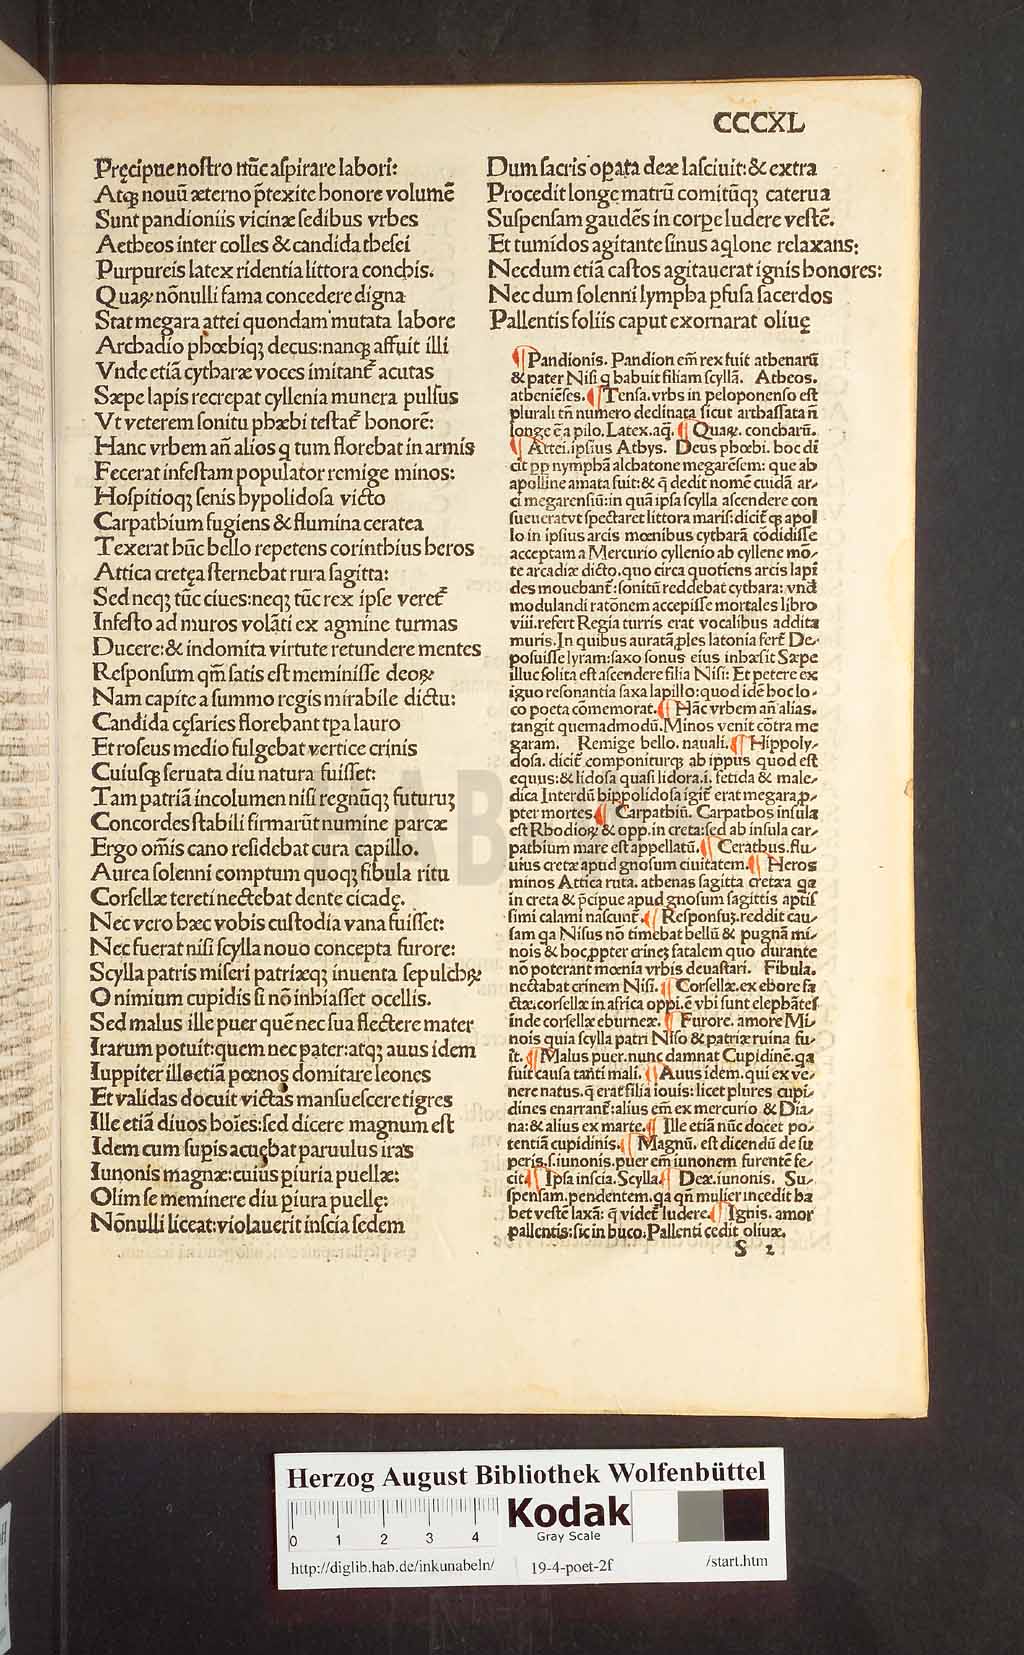 CCCXL
Pręcipue noſtro nūc aſpirare labori:
Atq; nouū æterno p̄texite honore volumē
Sunt pandioniis vicinæ ſedibus vrbes
Aetheos inter colles & candida theſei
Purpureis latex ridentia littora conchis.
Quaꝝ nōnulli fama concedere digna
Stat megara attei quondam mutata labore
Archadio phœbiq; decus: nanq; affuit illi
Vnde etiā cytharæ voces imitant᷑ acutas
Sæpe lapis recrepat cyllenia munera pulſus
Vt veterem ſonitu phæbi teſtat᷑ honorē:
Hanc vrbem añ alios q tum florebat in armis
Fecerat infeſtam populator remige minos:
Hoſpitioq; ſenis hypolidoſa victo
Carpathium fugiens & flumina ceratea
Texerat hūc bello repetens corinthius heros
Attica cretęa ſternebat rura ſagitta:
Sed neq; tūc ciues: neq; tūc rex ipſe veret᷑
Infeſto ad muros volāti ex agmine turmas
Ducere: & indomita virtute retundere mentes
Reſponſum qm̄ ſatis eſt meminiſſe deoꝝ
Nam capite a ſummo regis mirabile dictu:
Candida cęſaries florebant tpa lauro
Et roſeus medio fulgebat vertice crinis
Cuiuſq; ſeruata diu natura fuiſſet:
Tam patriā incolumen niſi regnūq; futuruꝫ
Concordes ſtabili firmarūt numine parcæ
Ergo om̄is cano reſidebat cura capillo.
Aurea ſolenni comptum quoq; fibula ritu
Corſellæ tereti nectebat dente cicadę.
Nec vero hæc vobis cuſtodia vana fuiſſet:
Nec fuerat niſi ſcylla nouo concepta furore:
Scylla patris miſeri patriæq; inuenta ſepulchꝝ
O nimium cupidis ſi nō inhiaſſet ocellis.
Sed malus ille puer quē nec ſua flectere mater
Irarum potuit: quem nec pater: atq; auus idem
Iuppiter ille etiā pœnos domitare leones
Et validas docuit victas manſueſcere tigres
Ille etiā diuos hoīes: ſed dicere magnum eſt
Idem cum ſuꝑis acuębat paruulus iras
Iunonis magnæ: cuius ꝑiuria puellæ:
Olim ſe meminere diu ꝑiura puellę:
Nōnulli liceat: violauerit inſcia ſedem
Dum ſacris oꝑata deæ laſciuit: & extra
Procedit longe matrū comitūq; caterua
Suſpenſam gaudēs in corꝑe ludere veſtē.
Et tumidos agitante ſinus aq̇lone relaxans:
Necdum etiā caſtos agitauerat ignis honores:
Nec dum ſolenni lympha ꝑfuſa ſacerdos
Pallentis foliis caput exornarat oliuę
¶ Pandionis. Pandion em̄ rex fuit athenarū
& pater Niſi q habuit filiam ſcyllā. Atheos.
atheniēſes. ¶ Tenſa. vrbs in peloponenſo eſt
plurali tñ numero declinata ſicut arthaſſata ñ
longe ē a pilo. Latex. aq̄. ¶ Quaꝝ. concharū.
¶ Attei. ipſius Athys. Deus phœbi. hoc di
cit ꝓp nymphā alchatone megarēſem: que ab
apolline amata fuit: & q̄ dedit nomē cuidā ar⸗
ci megarenſiū: in quā ipſa ſcylla aſcendere con
ſueuerat vt ſpectaret littora maris: dicit᷑ q; apol
lo in ipſius arcis mœnibus cytharā cōdidiſſe
acceptam a Mercurio cyllenio ab cyllene mō⸗
te arcadiæ dicto. quo circa quotiens arcis lapi
des mouebant᷑: ſonitū reddebat cythara: vnde
modulandi ratōnem accepiſſe mortales libro
viii. refert Regia turris erat vocalibus addita
muris. In quibus auratā ꝓles latonia fert᷑ De⸗
poſuiſſe lyram: ſaxo ſonus eius inhæſit Sæpe
illuc ſolita eſt aſcendere filia Niſi: Et petere ex
iguo reſonantia ſaxa lapillo: quod idē hoc lo⸗
co poeta cōmemorat. ¶ Hāc vrbem añ alias.
tangit quemadmodū. Minos venit cōtra me
garam. Remige bello. nauali. ¶ Hippoly⸗
doſa. dicit᷑ componiturq; ab ippus quod eſt
equus: & lidoſa quaſi lidora. i. fetida & male⸗
dica Interdū hippolidoſa igit᷑ erat megara ꝓ⸗
pter mortes. ¶ Carpathiū. Carpathos inſula
eſt Rhodioꝝ & opp. in creta: ſed ab inſula car⸗
pathium mare eſt appellatū. ¶ Cerathus. flu⸗
uius cretæ apud gnoſum ciuitatem. ¶ Heros
minos Attica ruta. athenas ſagitta cretæa qa
in creta & p̄cipue apud gnoſum ſagittis aptiſ
ſimi calami naſcunt᷑. ¶ Reſponſuꝫ. reddit cau⸗
ſam qa Niſus nō timebat bellū & pugnā mi⸗
nois & hoc ꝓpter crineꝫ fatalem quo durante
nō poterant mœnia vrbis deuaſtari. Fibula.
nectabat crinem Niſi. ¶ Corſellæ. ex ebore fa
ctæ. corſellæ in africa oppi. ē vbi ſunt elephātes
inde corſellæ eburneæ. ¶ Furore. amore Mi⸗
nois quia ſcylla patri Niſo & patriæ ruina fu⸗
it. ¶ Malus puer. nunc damnat Cupidinē. qa
fuit cauſa tanti mali. ¶ Auus idem. qui ex ve⸗
nere natus. q̄ erat filia iouis: licet plures cupi⸗
dines enarrant᷑: alius em̄ ex mercurio & Dia⸗
na: & alius ex marte. ¶ Ille etiā nūc docet po⸗
tentiā cupidinis. ¶ Magnū. eſt dicendū de ſu
peris. ſ. iunonis. puer em̄ iunonem furentē fe⸗
cit. ¶ Ipſa inſcia. Scylla ¶ Deæ. iunonis. Su⸗
ſpenſam. pendentem. qa qñ mulier incedit ha
bet veſtē laxā: q̄ videt᷑ ludere. ¶ Ignis. amor
pallentis: ſic in buco. Pallenti cedit oliuæ.
S 2
HAB
Herzog August Bibliothek Wolfenbüttel
0 1 2 3 4
Kodak
Gray Scale
http://diglib.hab.de/inkunabeln/ 19-4-poet-2f /start.htm